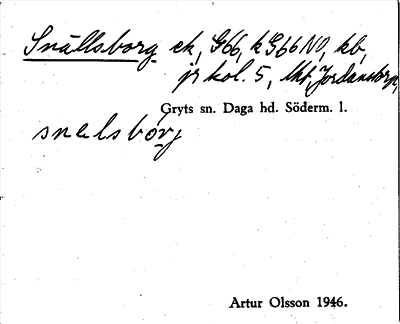 Snällsborg ek, G66, k G66 NO, kb,
jr kol. 5, lht, Jordanstorp,
Gryts sn. Daga hd. Söderm. l.
snelsbórj
Artur Olsson 1946.